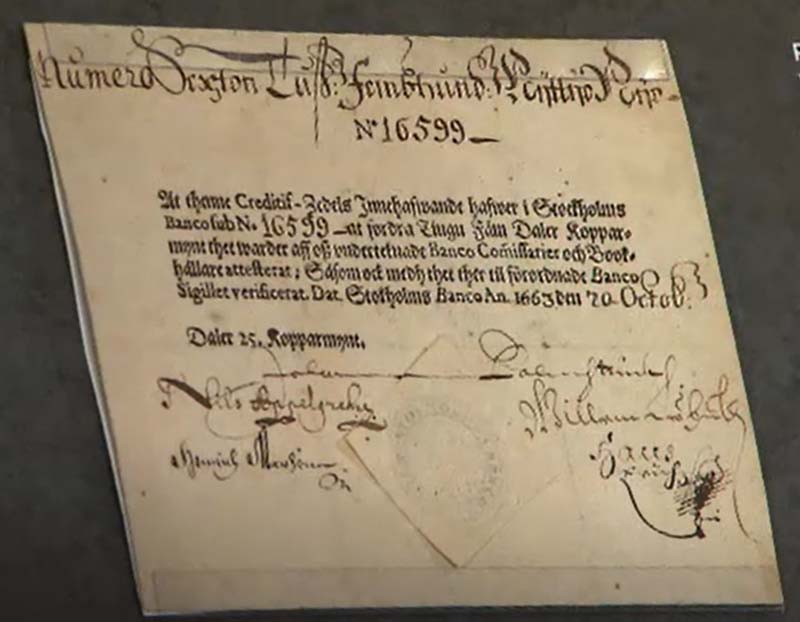 Numero Sexton Tuß: femhund: Nijttijo Nijo
No 16599
At thenne Creditif-Zedels Innehafwande hafwer i Stockholms
Banco sub No. 16599 at fordra Tiugu Fäm Daler Koppar-
mynt thet warder aff oß undertetnade Banco Comissarier och Book-
hållare attesterat; Såsom ock medh thet ther til förordnade Banco
Sigillet verificerat. Dat. Stokholms Banco An. 1663 den 20 Octob:
Daler 25. Kopparmynt.